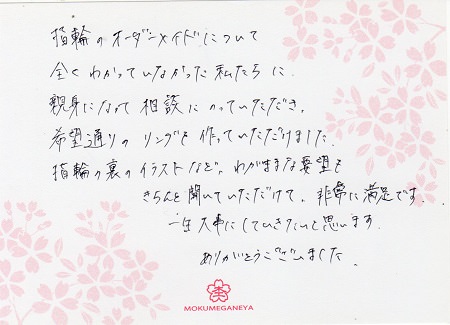 指輪のオーダーメイドについて
全くわかっていなかった私たちに
親身になって相談にのっていただき、
希望通りのリングを作っていただけました。
指輪の裏のイラストなど、わがままな要望も
きちんと聞いていただけて、非常に満足です。
一生大事にしていきたいと思います。
ありがとうございました。
MOKUMEGANEYA